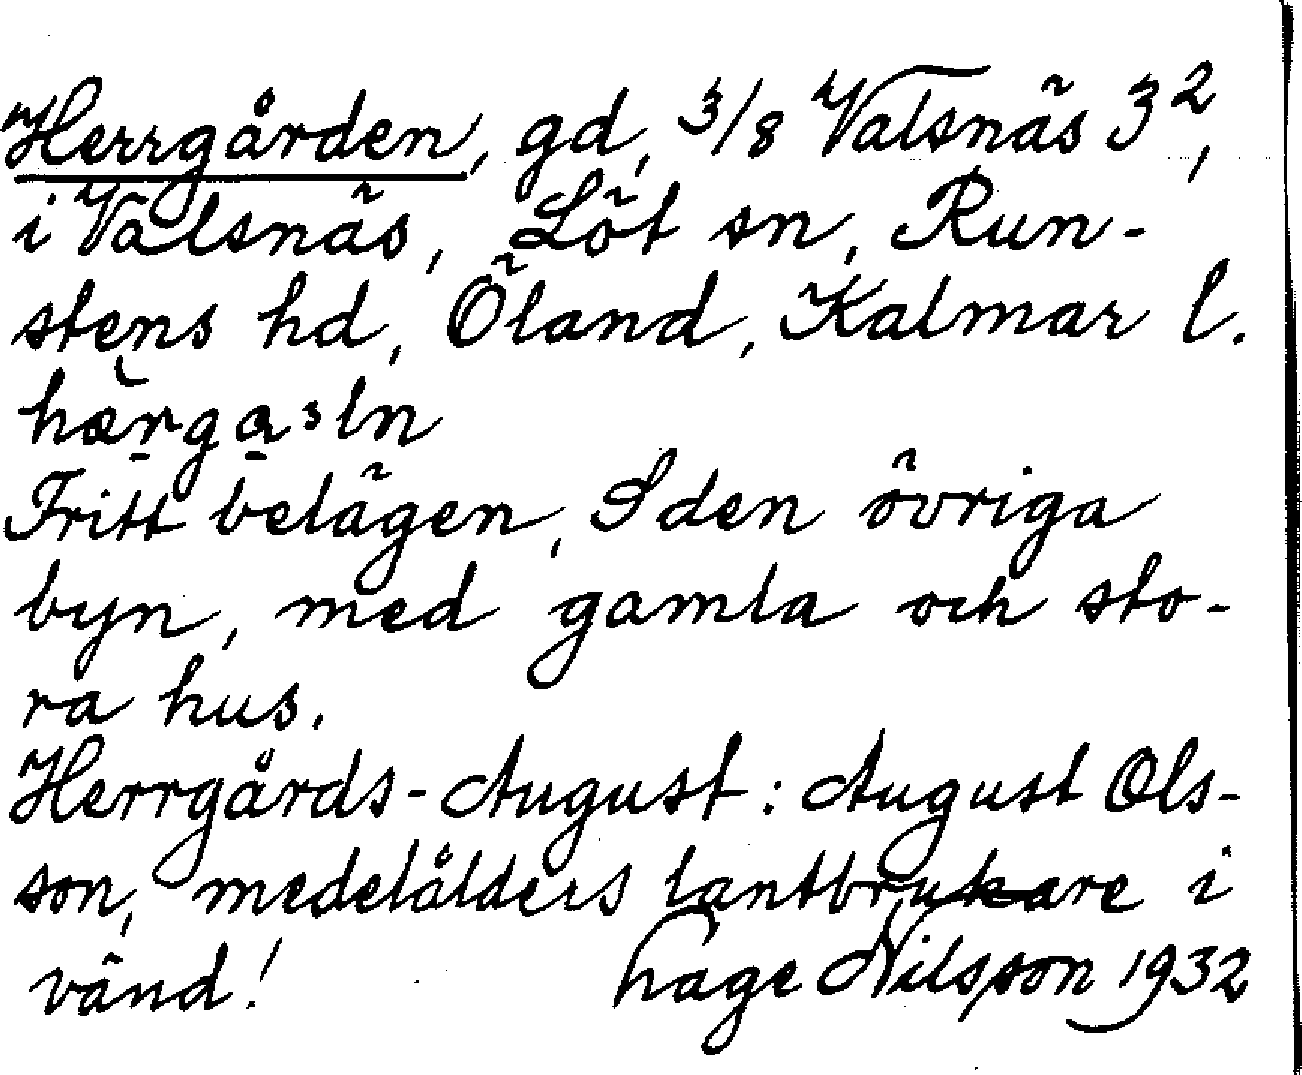 Herrgården, gd, 3/8 Valsnäs 3²,
i Valsnäs, Löt sn, Run-
stens hd, Öland, Kalmar l.
hærga³ln
Fritt belägen, S den övriga
byn, med gamla och sto-
ra hus.
Herrgårds-August: August Ols-
son, medelålders lantbrukare i
vänd! Hage Nilsson 1932